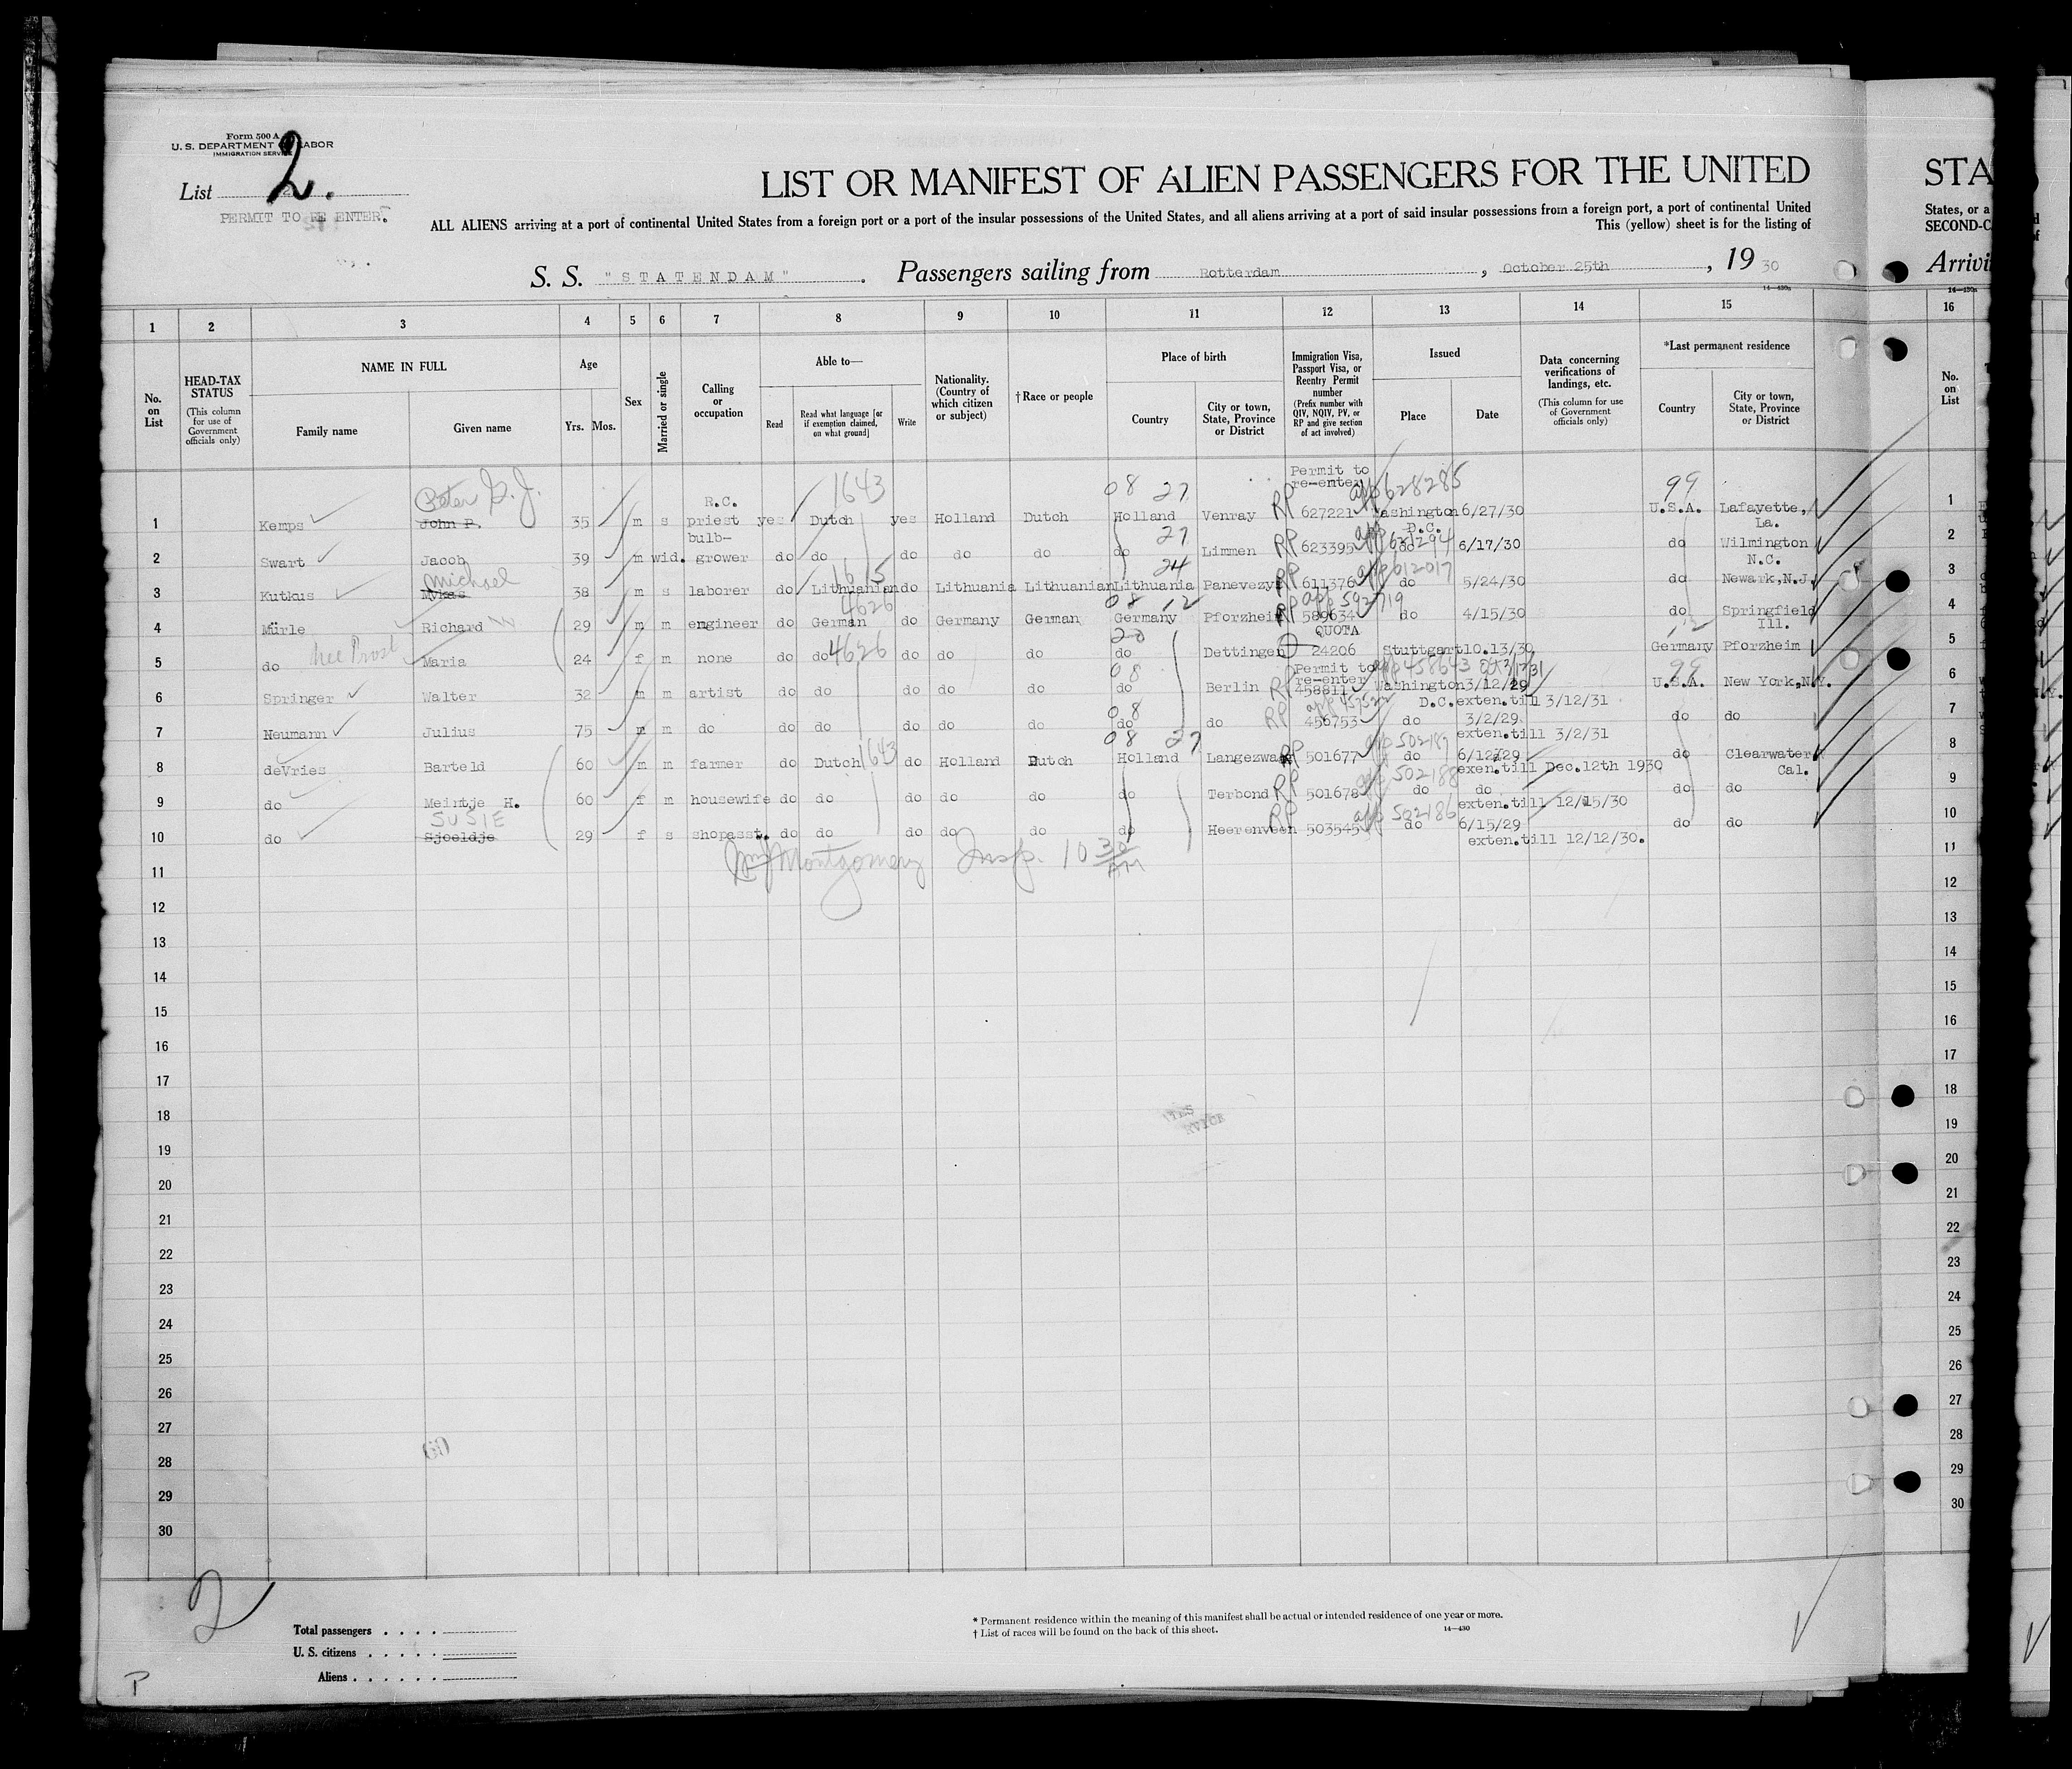 Form 500 A
U. S. DEPARTMENT OF LABOR
IMMIGRATION SERVICE
List 2.
PERMIT TO RE ENTER.
LIST OR MANIFEST OF ALIEN PASSENGERS FOR THE UNITED
STA
ALL ALIENS arriving at a port of continental United States from a foreign port or a port of the insular possessions of the United States, and all aliens arriving at a port of said insular possessions from a foreign port, a port of continental United
States, or a
This (yellow) sheet is for the listing of
SECOND-C
S. S. "STATENDAM". Passengers sailing from Rotterdam, October 25th, 19 30
Arrivi
14—430a
1 2 3 4 5 6 7 8 9 10 11 12 13 14 15 16
No. on List
HEAD-TAX STATUS
(This column for use of Government officials only)
NAME IN FULL
Family name
Given name
Age
Yrs. Mos.
Sex
Married or single
Calling or occupation
Able to—
Read
Read what language [or if exemption claimed, on what ground]
Write
Nationality. (Country of which citizen or subject)
†Race or people
Place of birth
Country
City or town, State, Province or District
Immigration Visa, Passport Visa, or Reentry Permit number
(Prefix number with QIV, NQIV, PV, or RP and give section of act involved)
Issued
Place
Date
Data concerning verifications of landings, etc.
(This column for use of Government officials only)
*Last permanent residence
Country
City or town, State, Province or District
No. on List
Peter G. J. 1643 08 27 Permit to re-enter app 628285 99
1 Kemps John P. 35 m s R.C. priest yes Dutch yes Holland Dutch Holland Venray RP 627221 Washington D.C. 6/27/30 U.S.A. Lafayette, La. 1
27
2 Swart Jacob 39 m wid. bulb-grower do do do do do do Limmen RP 623395 do 6/17/30 do Wilmington N.C. 2
Michael 1615 24 app 612017
3 Kutkus Mykas 38 m s laborer do Lithuanian do Lithuania Lithuanian Lithuania Panevezys RP 611376 do 5/24/30 do Newark, N.J. 3
4626 08 12 app 592719
4 Mürle Richard W 29 m m engineer do German do Germany German Germany Pforzheim RP 589634 do 4/15/30 do Springfield Ill. 4
nee Prost 4626 QUOTA
5 do Maria 24 f m none do do do do do do Dettingen 24206 Stuttgart 10.13/30 Germany Pforzheim 5
08 Permit to re-enter app 458643 99
6 Springer Walter 32 m m artist do do do do do do Berlin RP 458811 Washington D.C. 3/12/29 exten.till 3/12/31 U.S.A. New York, N.Y. 6
08
7 Neumann Julius 75 m m do do do do do do do do RP 456753 do 3/2/29 exten.till 3/2/31 do do 7
1643 08 27 app 502187
8 deVries Barteld 60 m m farmer do Dutch do Holland Dutch Holland Langezwaag RP 501677 do 6/12/29 exen.till Dec.12th 1930 do Clearwater Cal. 8
app 502188
9 do Meintje H. 60 f m housewife do do do do do do Terbond RP 501678 do do exten.till 12/15/30 do do 9
SUSIE app 502186
10 do Sjoeldje 29 f s shopasst. do do do do do do Heerenveen RP 503545 do 6/15/29 exten.till 12/12/30. do do 10
Montgomery Insp. 10 30 AM
11 11
12 12
13 13
14 14
15 15
16 16
17 17
18 18
19 19
20 20
21 21
22 22
23 23
24 24
25 25
26 26
27 27
28 28
29 29
30 30
2
Total passengers . . . .
U. S. citizens . . . . .
Aliens . . . . . . .
* Permanent residence within the meaning of this manifest shall be actual or intended residence of one year or more.
† List of races will be found on the back of this sheet.
14—430
P